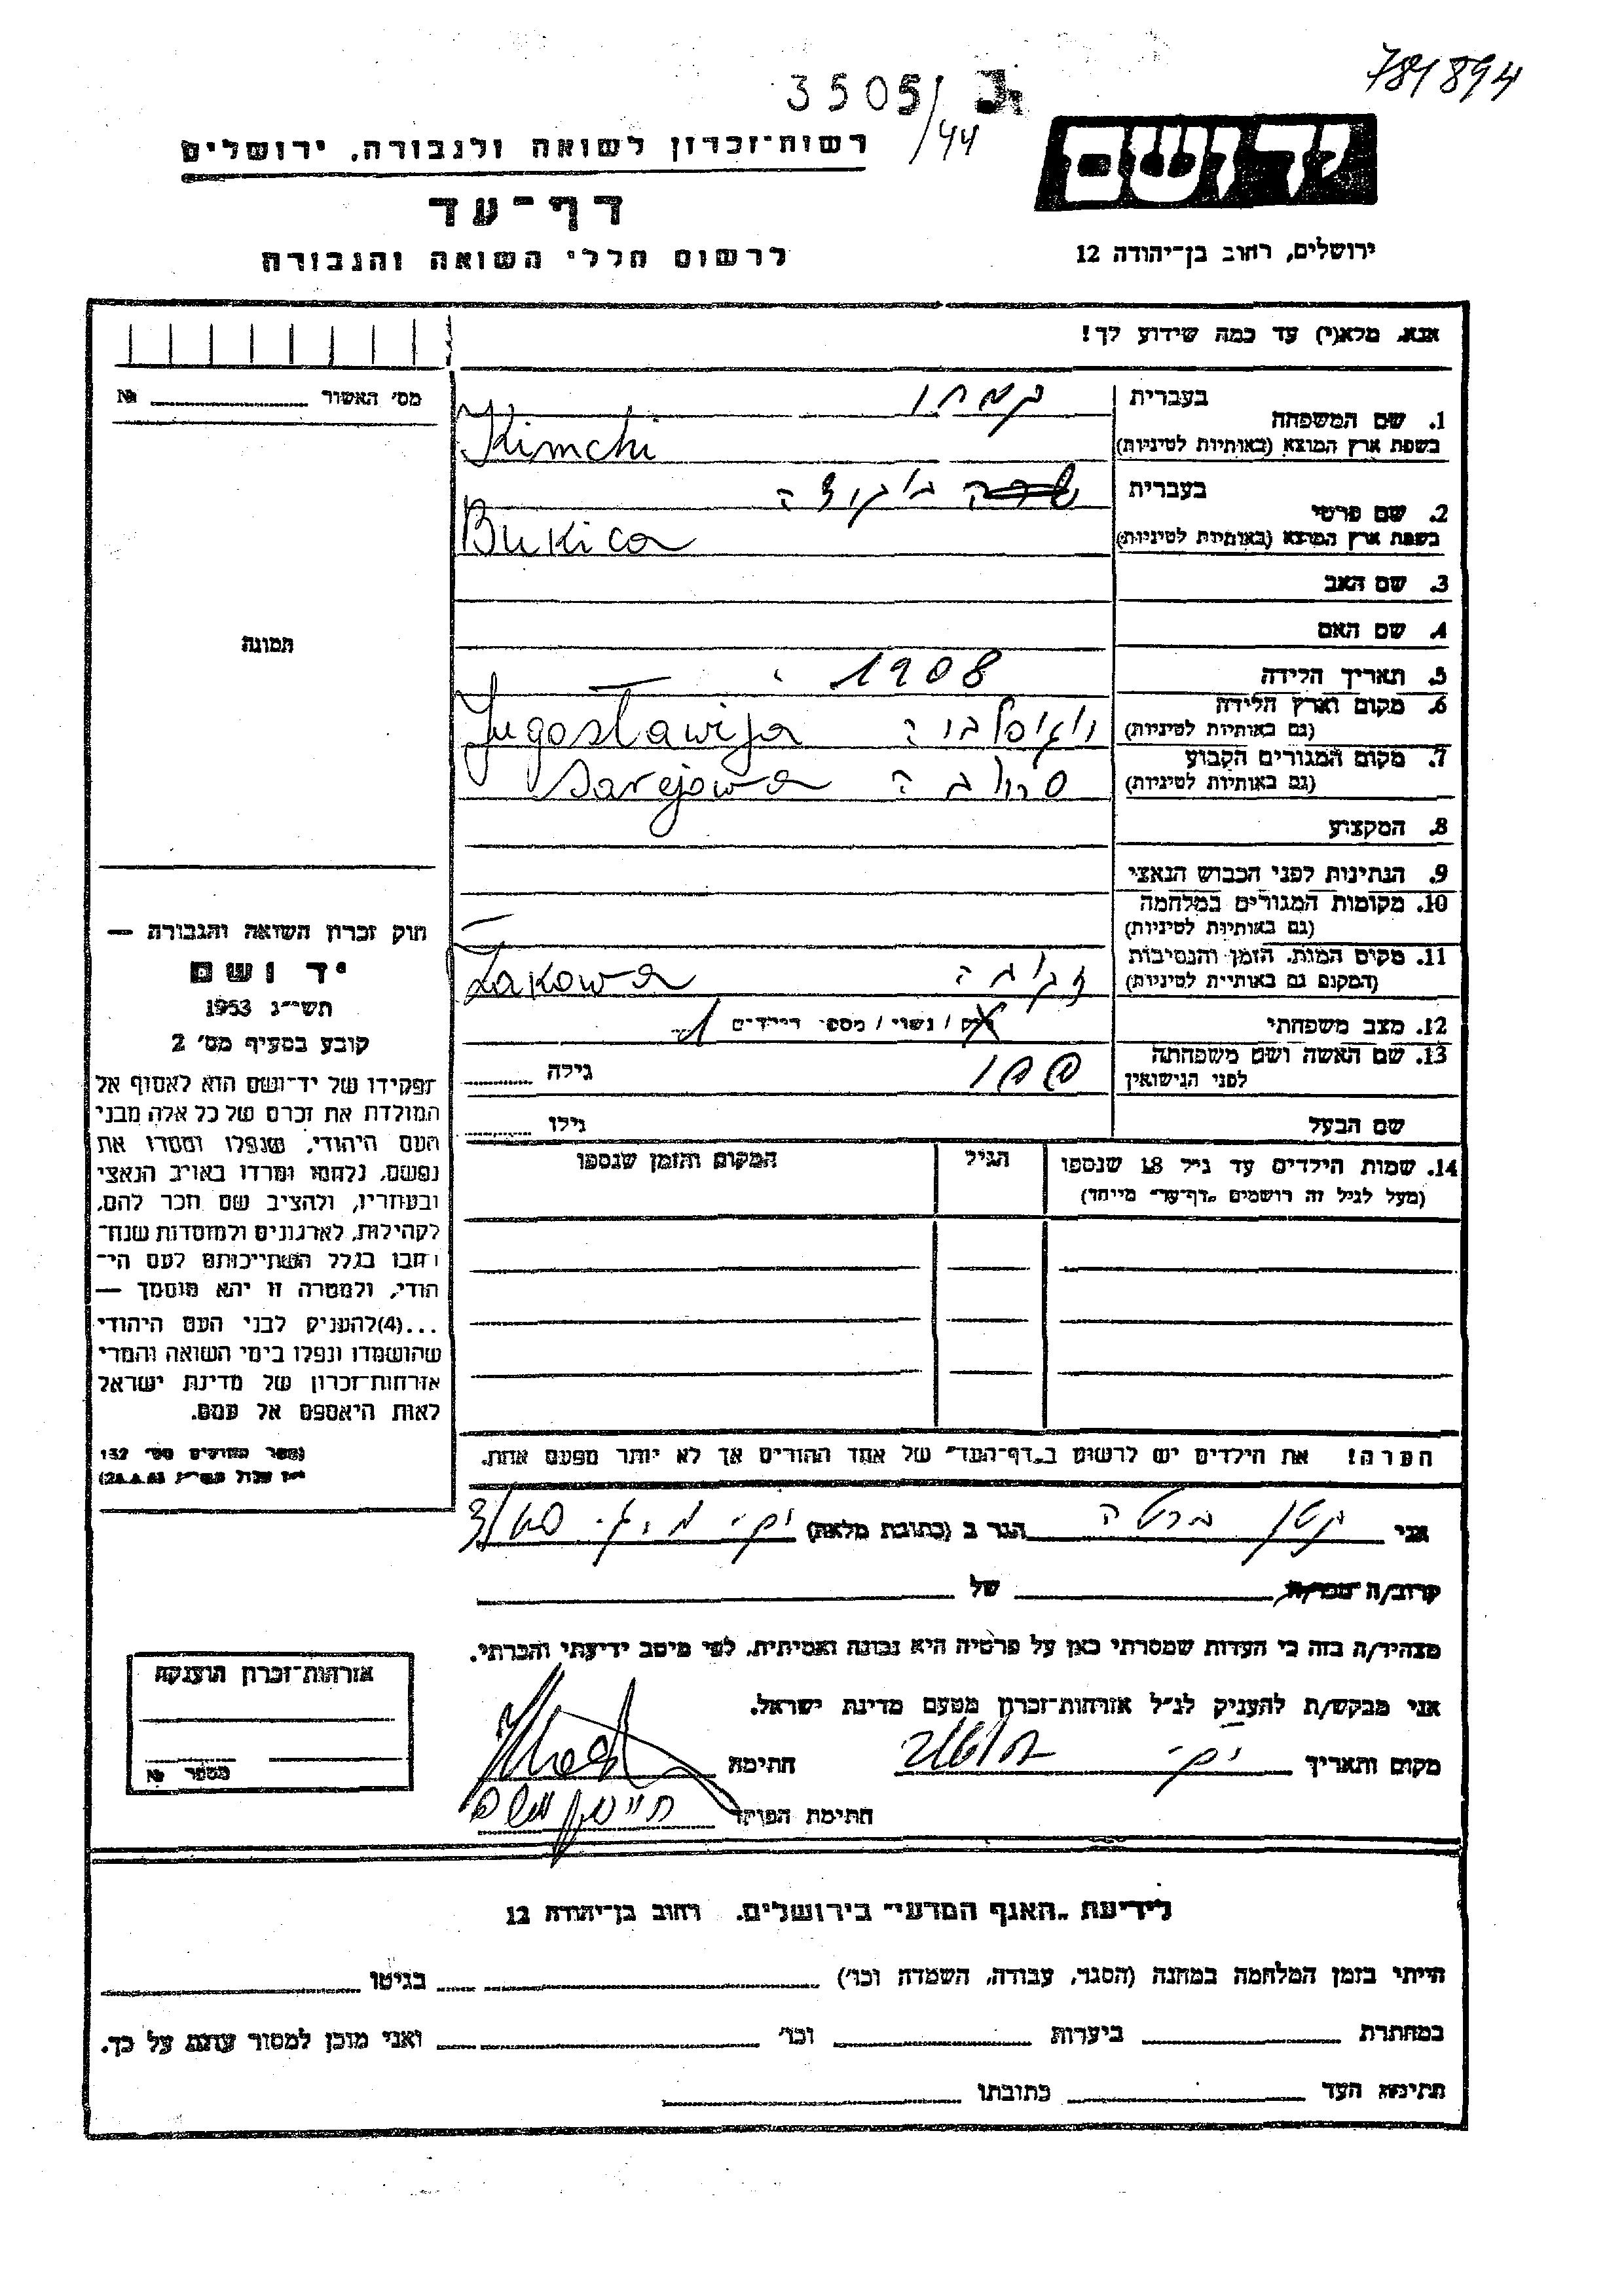 781894
3505/
/44
רשות־זכרון לשואה ולגבורה, ירושלים
יד ושם
דף־עד
לרשום חללי השואה והגבורה
ירושלים, רחוב בן־יהודה 12
אנא, מלא(י) עד כמה שידוע לך!
מס׳ האשור № 
בעברית קמחי
1. שם המשפחה
בשפת ארץ המוצא (באותיות לטיניות) Kimchi
בעברית בוקיצה
2. שם פרטי
בשפת ארץ המוצא (באותיות לטיניות) Bukica
3. שם האב
4. שם האם
תמונה
5. תאריך הלידה 1908
6. מקום וארץ הלידה
(גם באותיות לטיניות) Jugoslawija
7. מקום המגורים הקבוע
(גם באותיות לטיניות) Sarejowa
8. המקצוע
9. הנתינות לפני הכבוש הנאצי
10. מקומות המגורים במלחמה
(גם באותיות לטיניות)
11. מקום המות, הזמן והנסיבות
(המקום גם באותיות לטיניות) Zakowa
12. מצב משפחתי רוק / נשוי / מספר הילדים 1
13. שם האשה ושם משפחתה
לפני הנישואין גילה
שם הבעל גילו
14. שמות הילדים עד גיל 18 שנספו הגיל המקום והזמן שנספו
(מעל לגיל זה רושמים „דף־עד״ מיוחד)
חוק זכרון השואה והגבורה —
יד ושם
תשי״ג 1953
קובע בסעיף מס׳ 2
תפקידו של יד־ושם הוא לאסוף אל
המולדת את זכרם של כל אלה מבני
העם היהודי, שנפלו ומסרו את
נפשם, נלחמו ומרדו באויב הנאצי
ובעוזריו, ולהציב שם וזכר להם,
לקהילות, לארגונים ולמוסדות שנח־
רבו בגלל השתייכותם לעם הי־
הודי, ולמטרה זו יהא מוסמך —
...(4)להעניק לבני העם היהודי
שהושמדו ונפלו בימי השואה והמרי
אזרחות־זכרון של מדינת ישראל
לאות היאספם אל עמם.
(ספר החוקים מס׳ 132
הערה! את הילדים יש לרשום ב„דף־העד״ של אחד ההורים אך לא יותר מפעם אחת.
אני קטן ברטה הגר ב (כתובת מלאה)
קרוב/ה מכר/ה של
מצהיר/ה בזה כי העדות שמסרתי כאן על פרטיה היא נכונה ואמיתית, לפי מיטב ידיעתי והכרתי.
אני מבקש/ת להעניק לנ״ל אזרחות־זכרון מטעם מדינת ישראל.
מקום ותאריך חתימה
חתימת הפוקד
אזרחות־זכרון הוענקה
מספר №
לידיעת „האגף המדעי״ בירושלים. רחוב בן־יהודה 12
הייתי בזמן המלחמה במחנה (הסגר, עבודה, השמדה וכו׳) בגיטו
במחתרת ביערות וכו׳ ואני מוכן למסור עדות על כך.
חתימת העד כתובתו